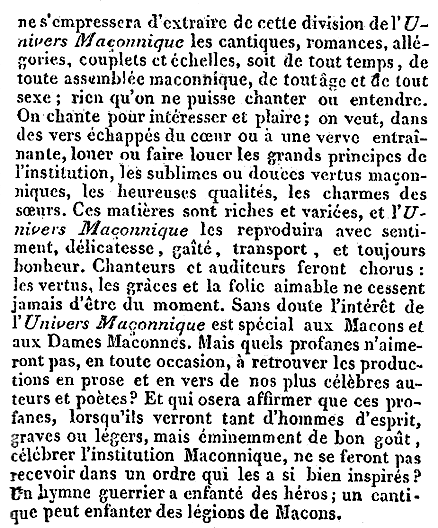 ne s'empressera d'extraire de cette division de l'U-
nivers Maçonnique les cantiques, romances, allé-
gories, couplets et échelles, soit de tout temps, de
toute assemblée maconnique, de tout âge et de tout
sexe ; rien qu'on ne puisse chanter ou entendre.
On chante pour intéresser et plaire ; on veut, dans
des vers échappés du cœur ou à une verve entraî-
nante, louer ou faire louer les grands principes de
l'institution, les sublimes ou douces vertus maçon-
niques, les heureuses qualités, les charmes des
sœurs. Ces matières sont riches et variées, et l'U-
nivers Maçonnique les reproduira avec senti-
ment, délicatesse, gaîté, transport, et toujours
bonheur. Chanteurs et auditeurs feront chorus :
les vertus, les grâces et la folie aimable ne cessent
jamais d'être du moment. Sans doute l'intérêt de
l'Univers Maçonnique est spécial aux Macons et
aux Dames Maconnes. Mais quels profanes n'aime-
ront pas, en toute occasion, à retrouver les produc-
tions en prose et en vers de nos plus célèbres au-
teurs et poètes ? Et qui osera affirmer que ces pro-
fanes, lorsqu'ils verront tant d'hommes d'esprit,
graves ou légers, mais éminemment de bon goût,
célébrer l'institution Maconnique, ne se feront pas
recevoir dans un ordre qui les a si bien inspirés ?
Un hymne guerrier a enfanté des héros ; un canti-
que peut enfanter des légions de Macons.